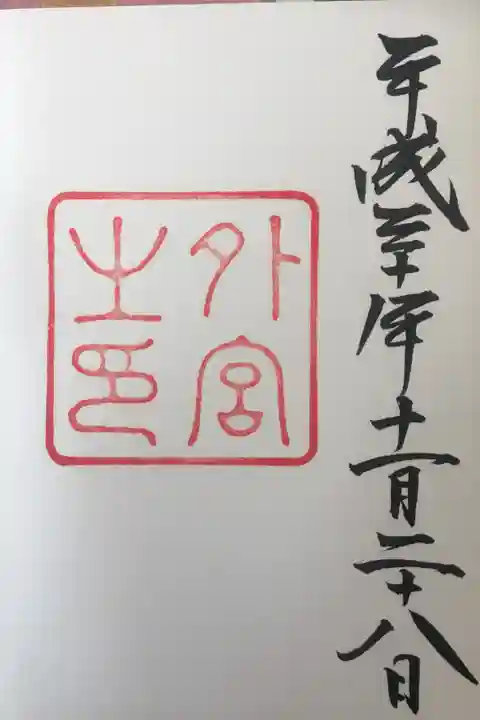 平成三十年十一月二十八日
外宮
之印